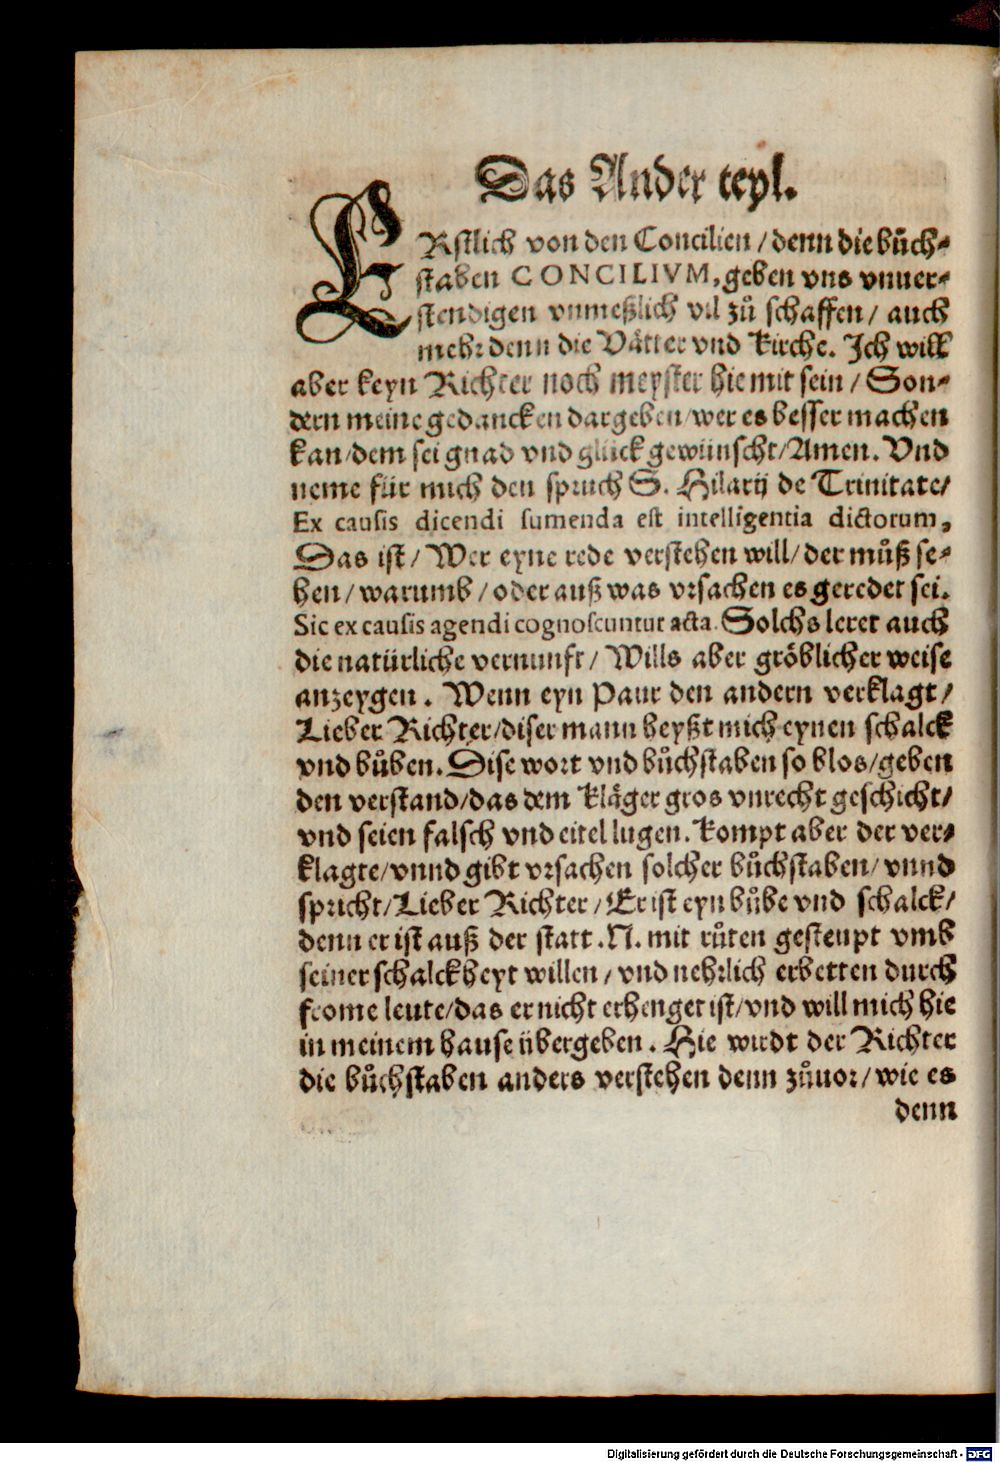 Das Ander teyl.
ERstlich von den Concilien / denn die bůch-
staben CONCILIVM, geben vns vnuer-
stendigen vnmeßlich vil zů schaffen / auch
mehr denn die Vätter vnd Kirche. Ich will
aber keyn Richter noch meyster hie mit sein / Son-
dern meine gedancken dargeben / wer es besser machen
kan / dem sei gnad vnd glück gewünscht / Amen. Vnd
neme für mich den spruch S. Hilarij de Trinitate /
Ex causis dicendi sumenda est intelligentia dictorum,
Das ist / Wer eyne rede verstehen will / der můß se-
hen / warumb / oder auß was vrsachen es geredet sei.
Sic ex causis agendi cognoscuntur acta. Solchs leret auch
die natürliche vernunft / Wills aber gröblicher weise
anzeygen. Wenn eyn Paur den andern verklagt /
Lieber Richter / diser mann heyßt mich eynen schalck
vnd bůben. Dise wort vnd bůchstaben so blos / geben
den verstand / das dem kläger gros vnrecht geschicht /
vnd seien falsch vnd eitel lugen. Kompt aber der ver-
klagte / vnnd gibt vrsachen solcher bůchstaben / vnnd
spricht / Lieber Richter / Er ist eyn bůbe vnd schalck /
denn er ist auß der statt .N. mit růten gesteupt vmb
seiner schalckheyt willen / vnd nehrlich erbetten durch
frome leute / das er nicht erhenget ist / vnd will mich hie
in meinem hause übergeben. Hie wirdt der Richter
die bůchstaben anders verstehen denn zůuor / wie es
denn
Digitalisierung gefördert durch die Deutsche Forschungsgemeinschaft - DFG